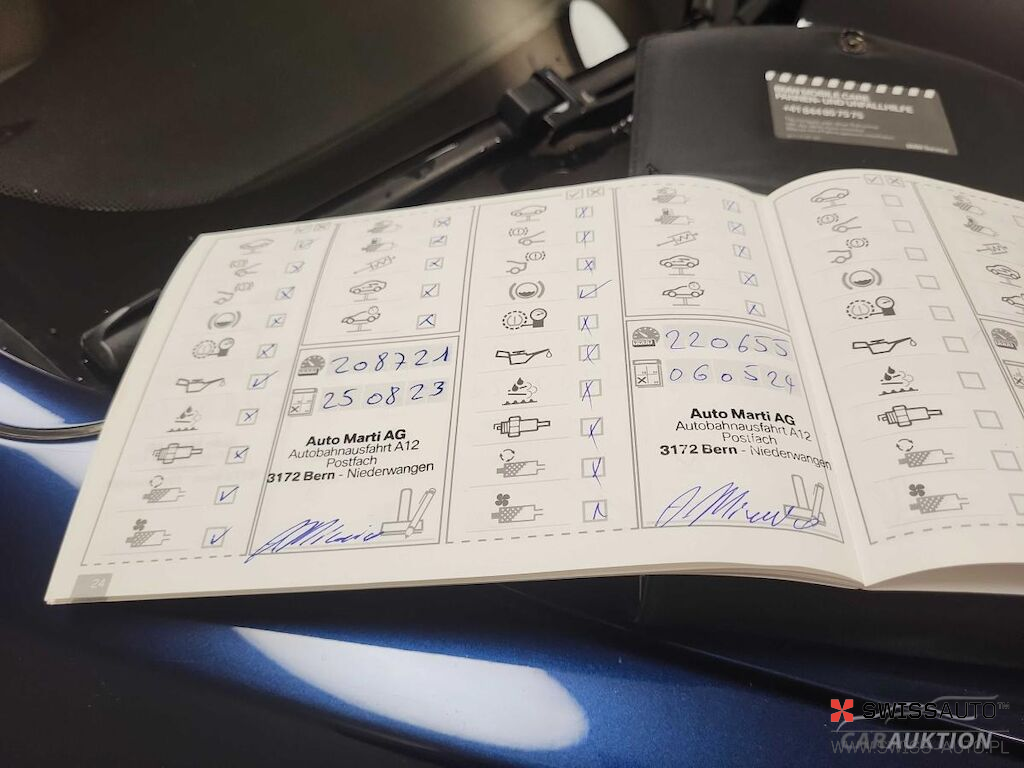 BMW MOBILE CARE
PANNEN- UND UNFALLHILFE
208721
250823
Auto Marti AG
Autobahnausfahrt A12
Postfach
3172 Bern - Niederwangen
220655
060524
Auto Marti AG
Autobahnausfahrt A12
Postfach
3172 Bern - Niederwangen
24
SWISSAUTO™
CARAUKTION
WWW.SWISS-AUTO.PL